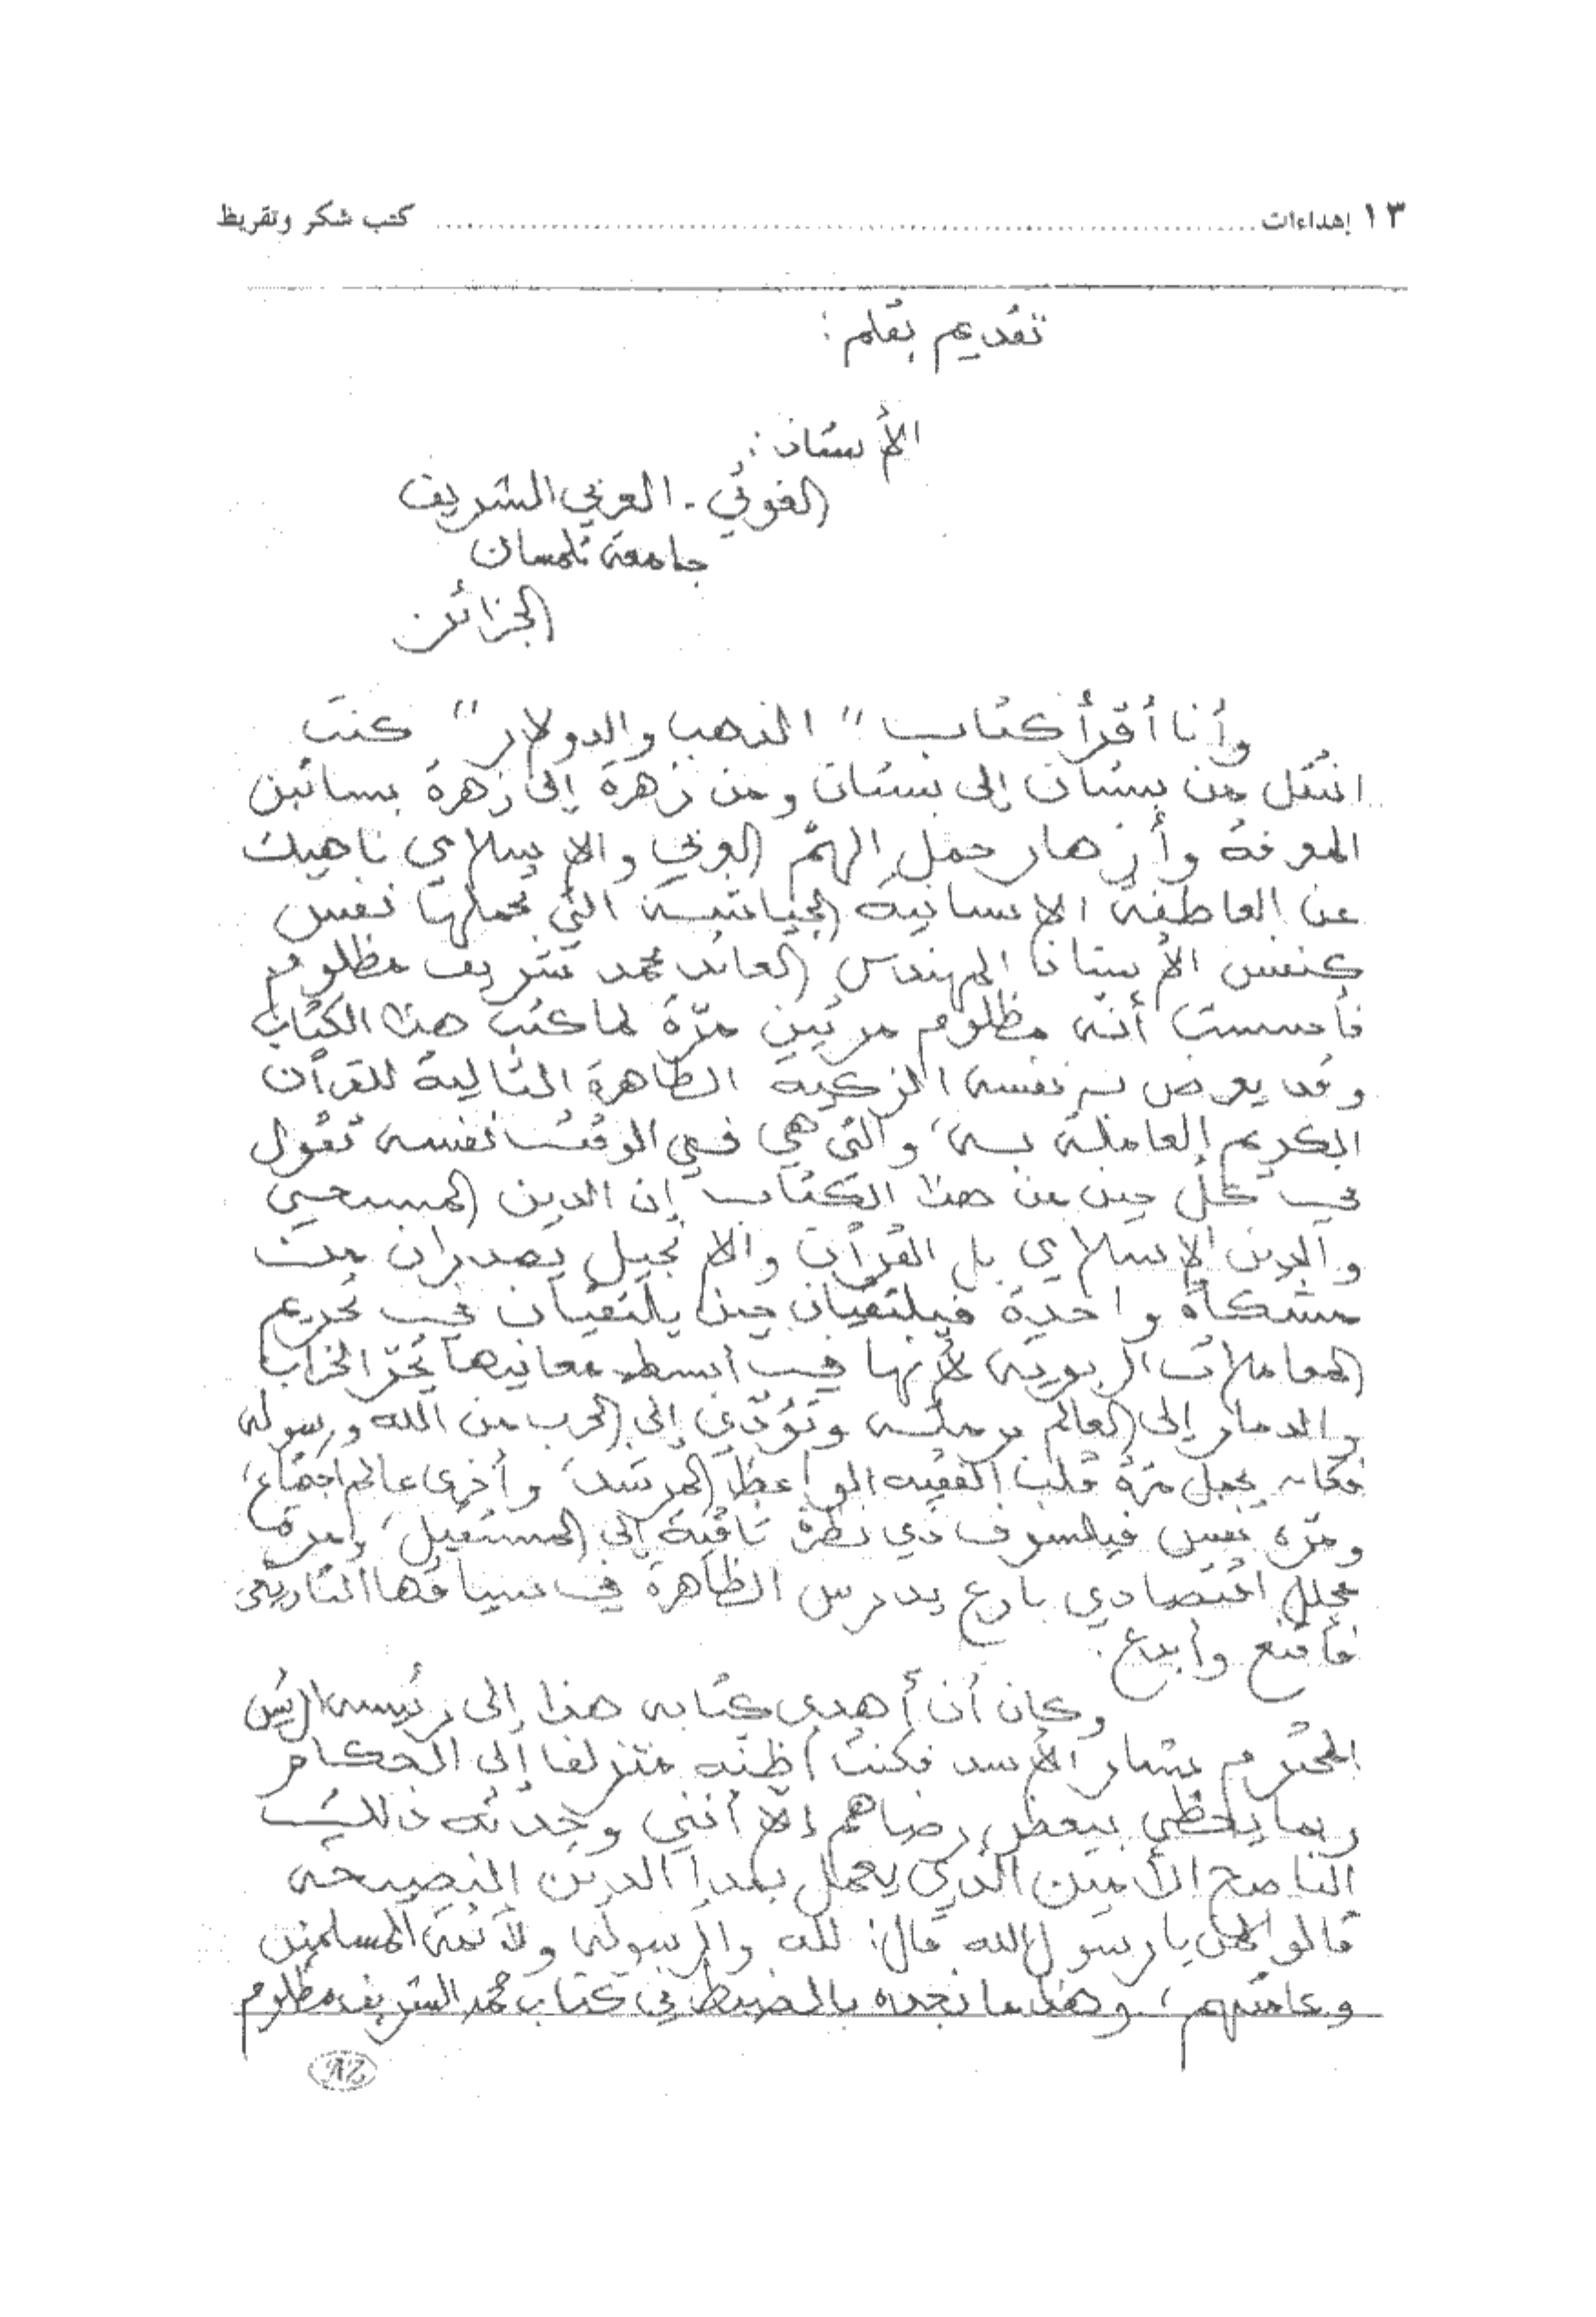 ١٣ إهداءات ........ كتب شكر وتقريظ
تقديم بقلم:
الأستاذ:
الغوثي - العربي الشريف
جامعة تلمسان
الجزائر
وأنا أقرأ كتاب "الذهب والدولار" كنت
انتقل من بستان إلى بستان ومن زهرة إلى زهرة بساتين
المعرفة وأزهار حمل الهمّ العربي والإسلامي ناهيك
عن العاطفة الإنسانية التي تحملها نفس
كنفس الأستاذ المهندس محمد شريف مظلوم
فأحسست أنه مظلوم مرتين مرّة لما كتب هذا الكتاب
وقد يعرض نفسه الزكية الطاهرة التالية للقرآن
الكريم العاملة به، والتي هي في الوقت نفسه تقول
في كل حين من هذا الكتاب إن الدين المسيحي
والدين الإسلامي بل القرآن والإنجيل يصدران من
مشكاة واحدة فيلتقيان حين يلتقيان في تحريم
المعاملات الربوية لأنها في أبسط معانيها تجرّ الخراب
والدمار إلى العالم برمته وتؤدّي إلى الحرب من الله ورسوله
فكان يحمل مرّة قلب الفقيه الواعظ المرشد، وأخرى عالم اجتماع،
ومرّة نفس فيلسوف ذي نظرة ثاقبة إلى المستقبل، ومرة
محلل اقتصادي بارع يدرس الظاهرة في سياقها التاريخي
فأقنع وأبدع.
وكان أن أهدى كتابه هذا إلى رئيسه الرئيس
المحترم بشار الأسد فكنت أظنه متزلفا إلى الحكام
ربما يحظى ببعض رضاهم إلاّ أنني وجدته ذلك
الناصح الأمين الذي يعمل بمبدإ الدين النصيحة
قالوا لمن يا رسول الله قال: لله ولرسوله ولأئمة المسلمين
وعامتهم، وهذا ما نجده بالضبط في كتاب محمد الشريف مظلوم